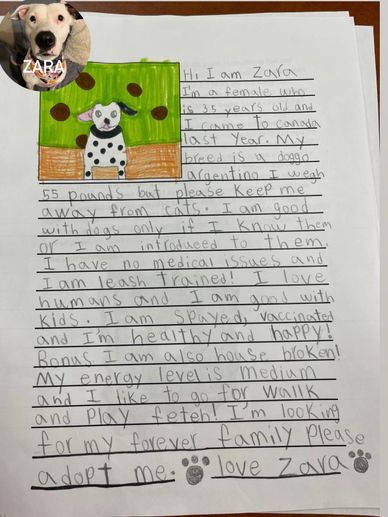 ZARA
Hi I am Zara
I'm a female who
is 3.5 years old and
I came to canada
last year. My
breed is a doggo
argentino I wegh
55 pounds but please keep me
away from cats. I am good
with dogs only if I know them
or I am introduced to them.
I have no medical issues and
I am leash trained! I love
humans and I am good with
kids. I am spayed, vaccinated
and I'm healthy and happy!
Bonus I am also house broken!
My energy level is medium
and I like to go for wallk
and play feteh! I'm looking
for my forever family please
adopt me. love Zara